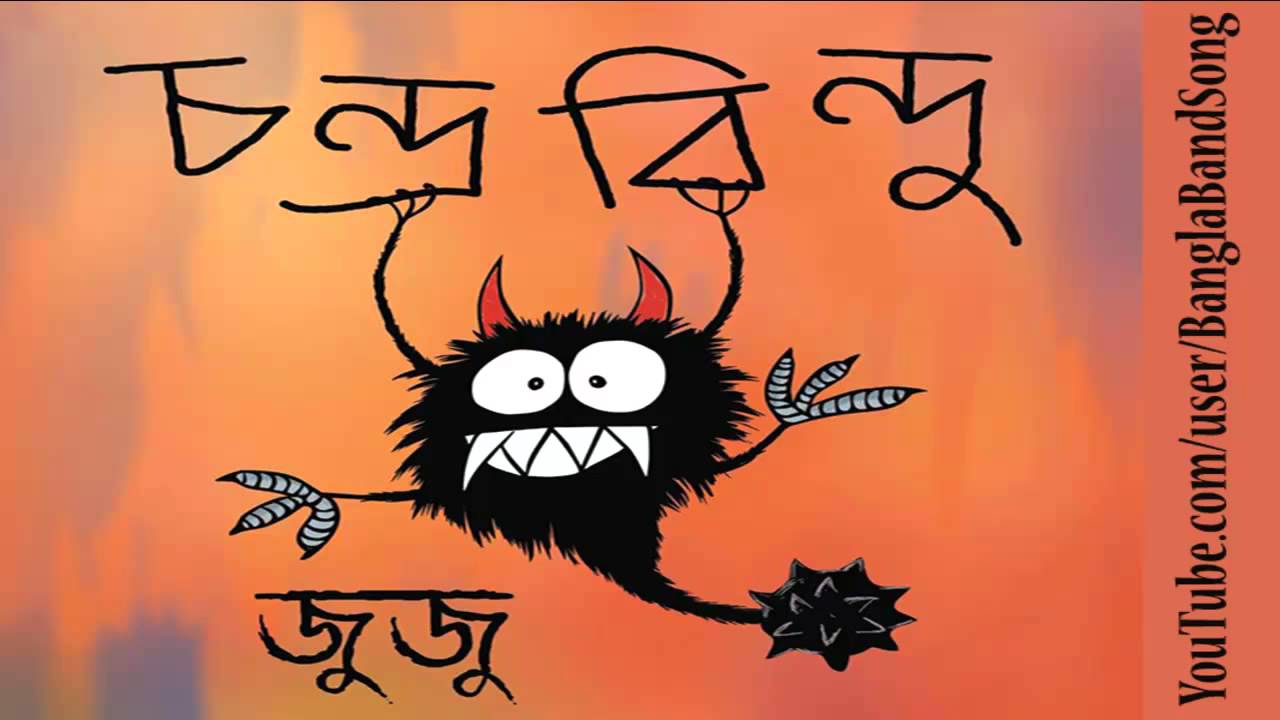 চন্দ্রবিন্দু
জুজু
YouTube.com/user/BanglaBandSong